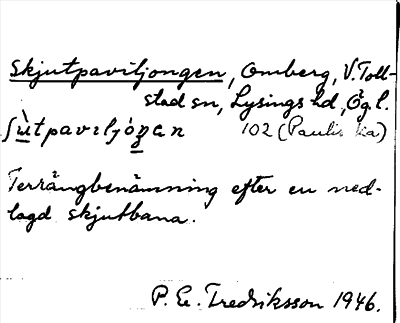 Skjutpaviljongen, Omberg, V. Toll-
stad sn, Lysings hd, Ög l.
ʃùtpaviljóŋen 102 (Paulis
Terrängbenämning efter en ned-
lagd skjutbana.
P. E. Fredriksson 1946.